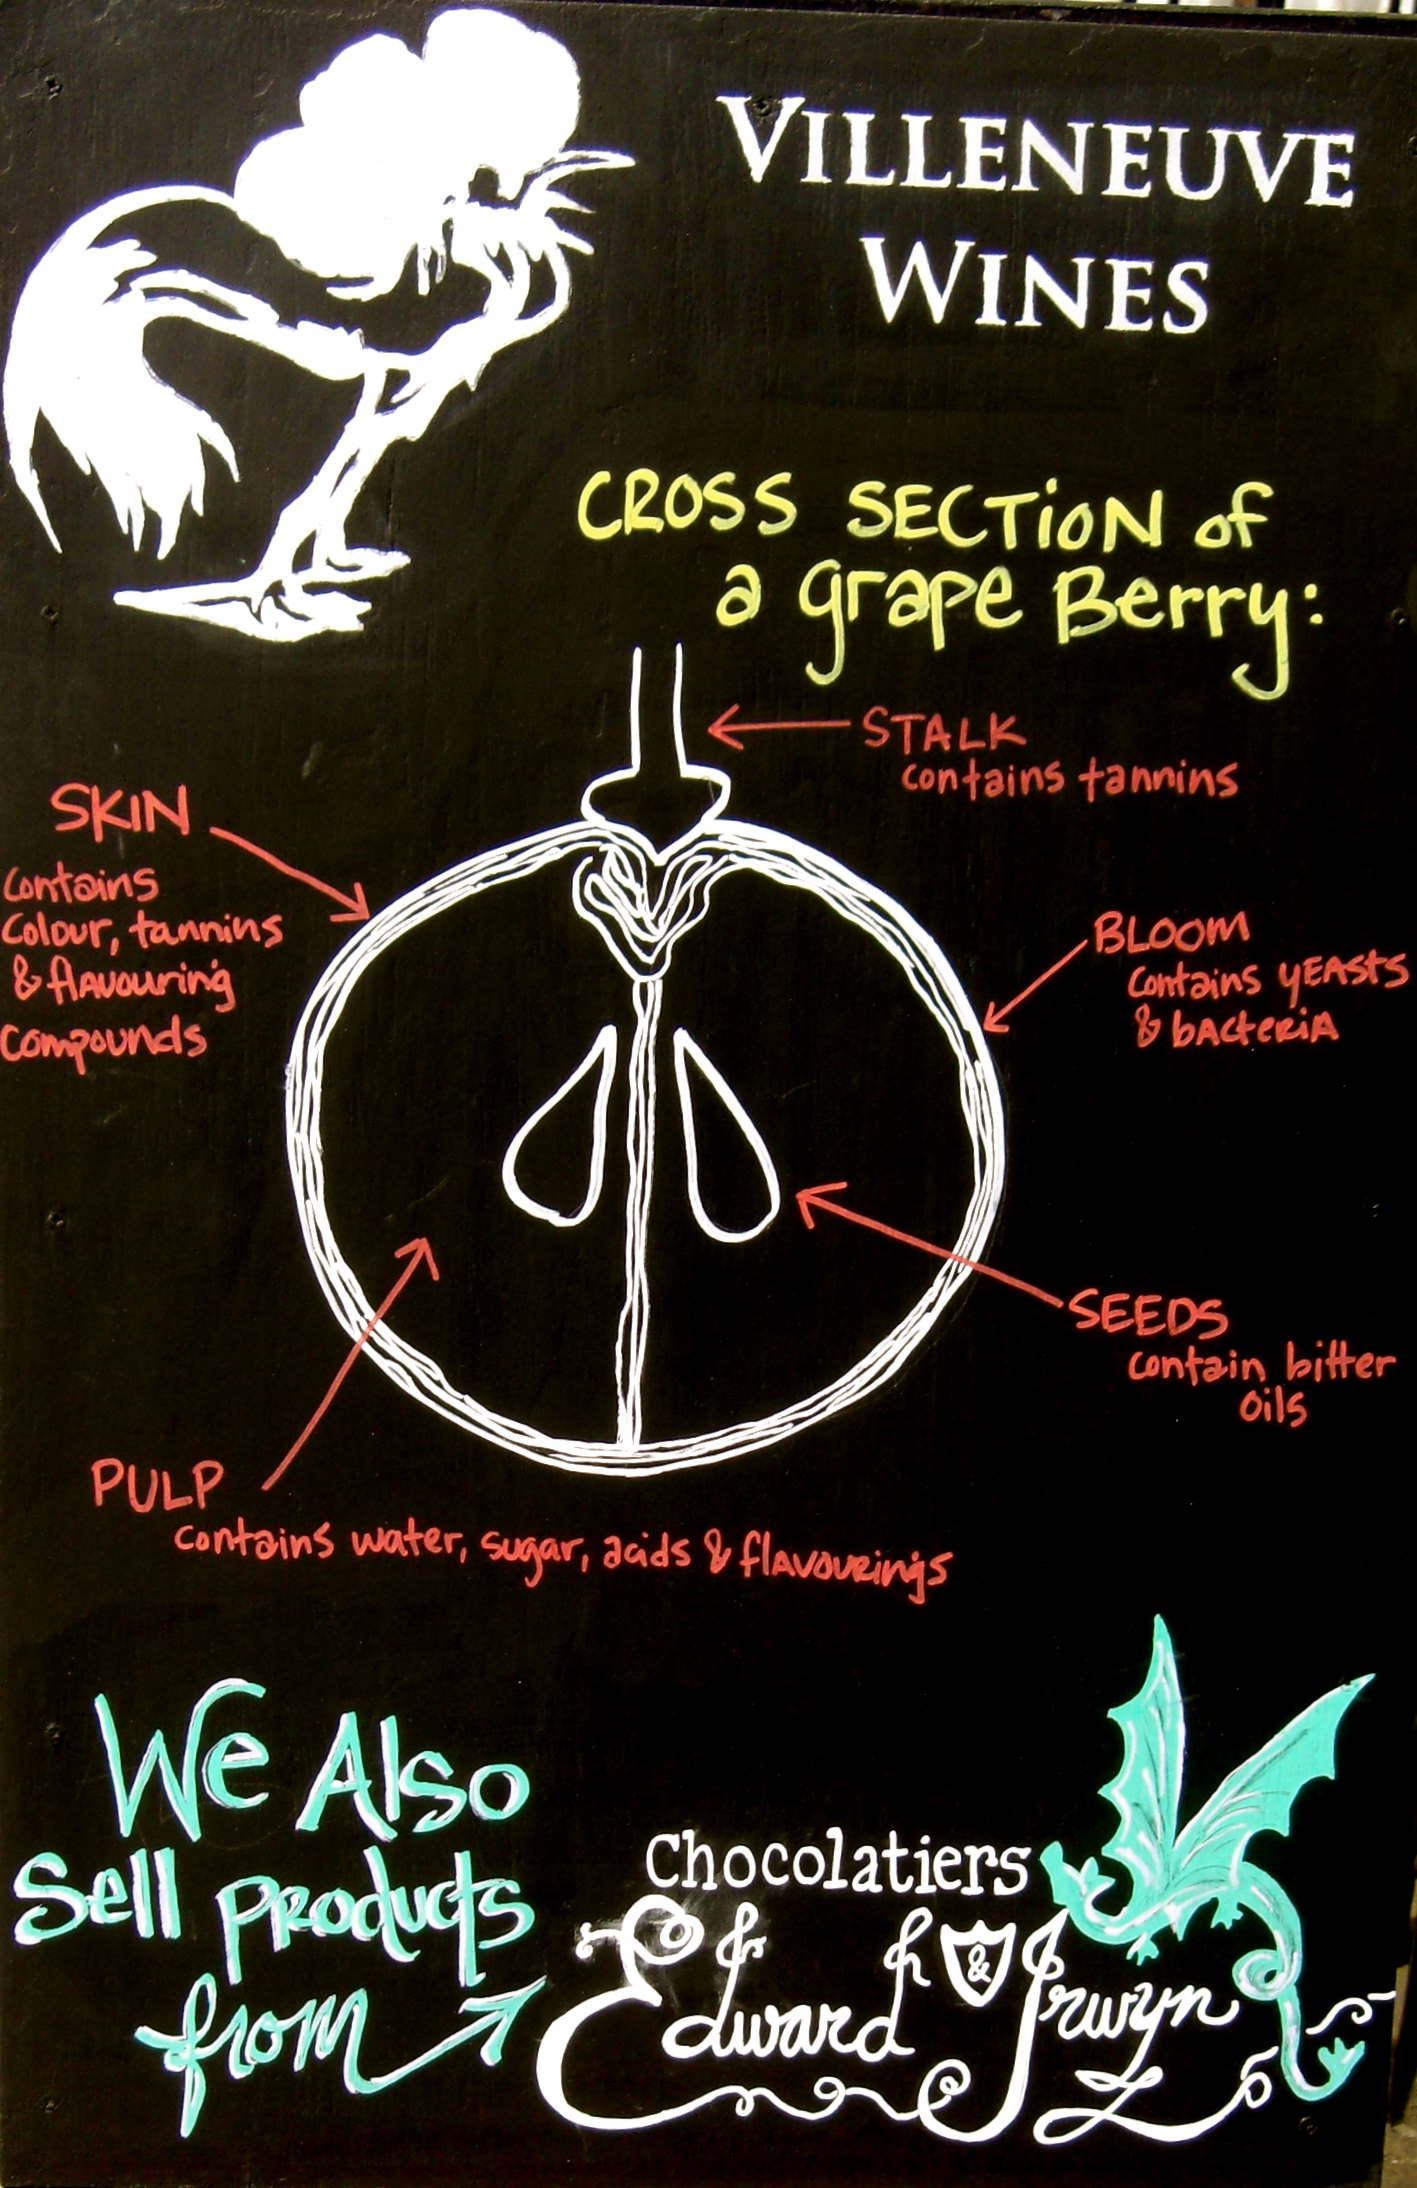 VILLENEUVE
WINES
CROSS SECTION of
a grape Berry:
STALK
contains tannins
SKIN
contains
colour, tannins
& flavouring
compounds
BLOOM
contains YEASTS
& bacteria
SEEDS
contain bitter
oils
PULP
contains water, sugar, acids & flavourings
We Also
Sell Products
from
Chocolatiers
Edward & Irwyn